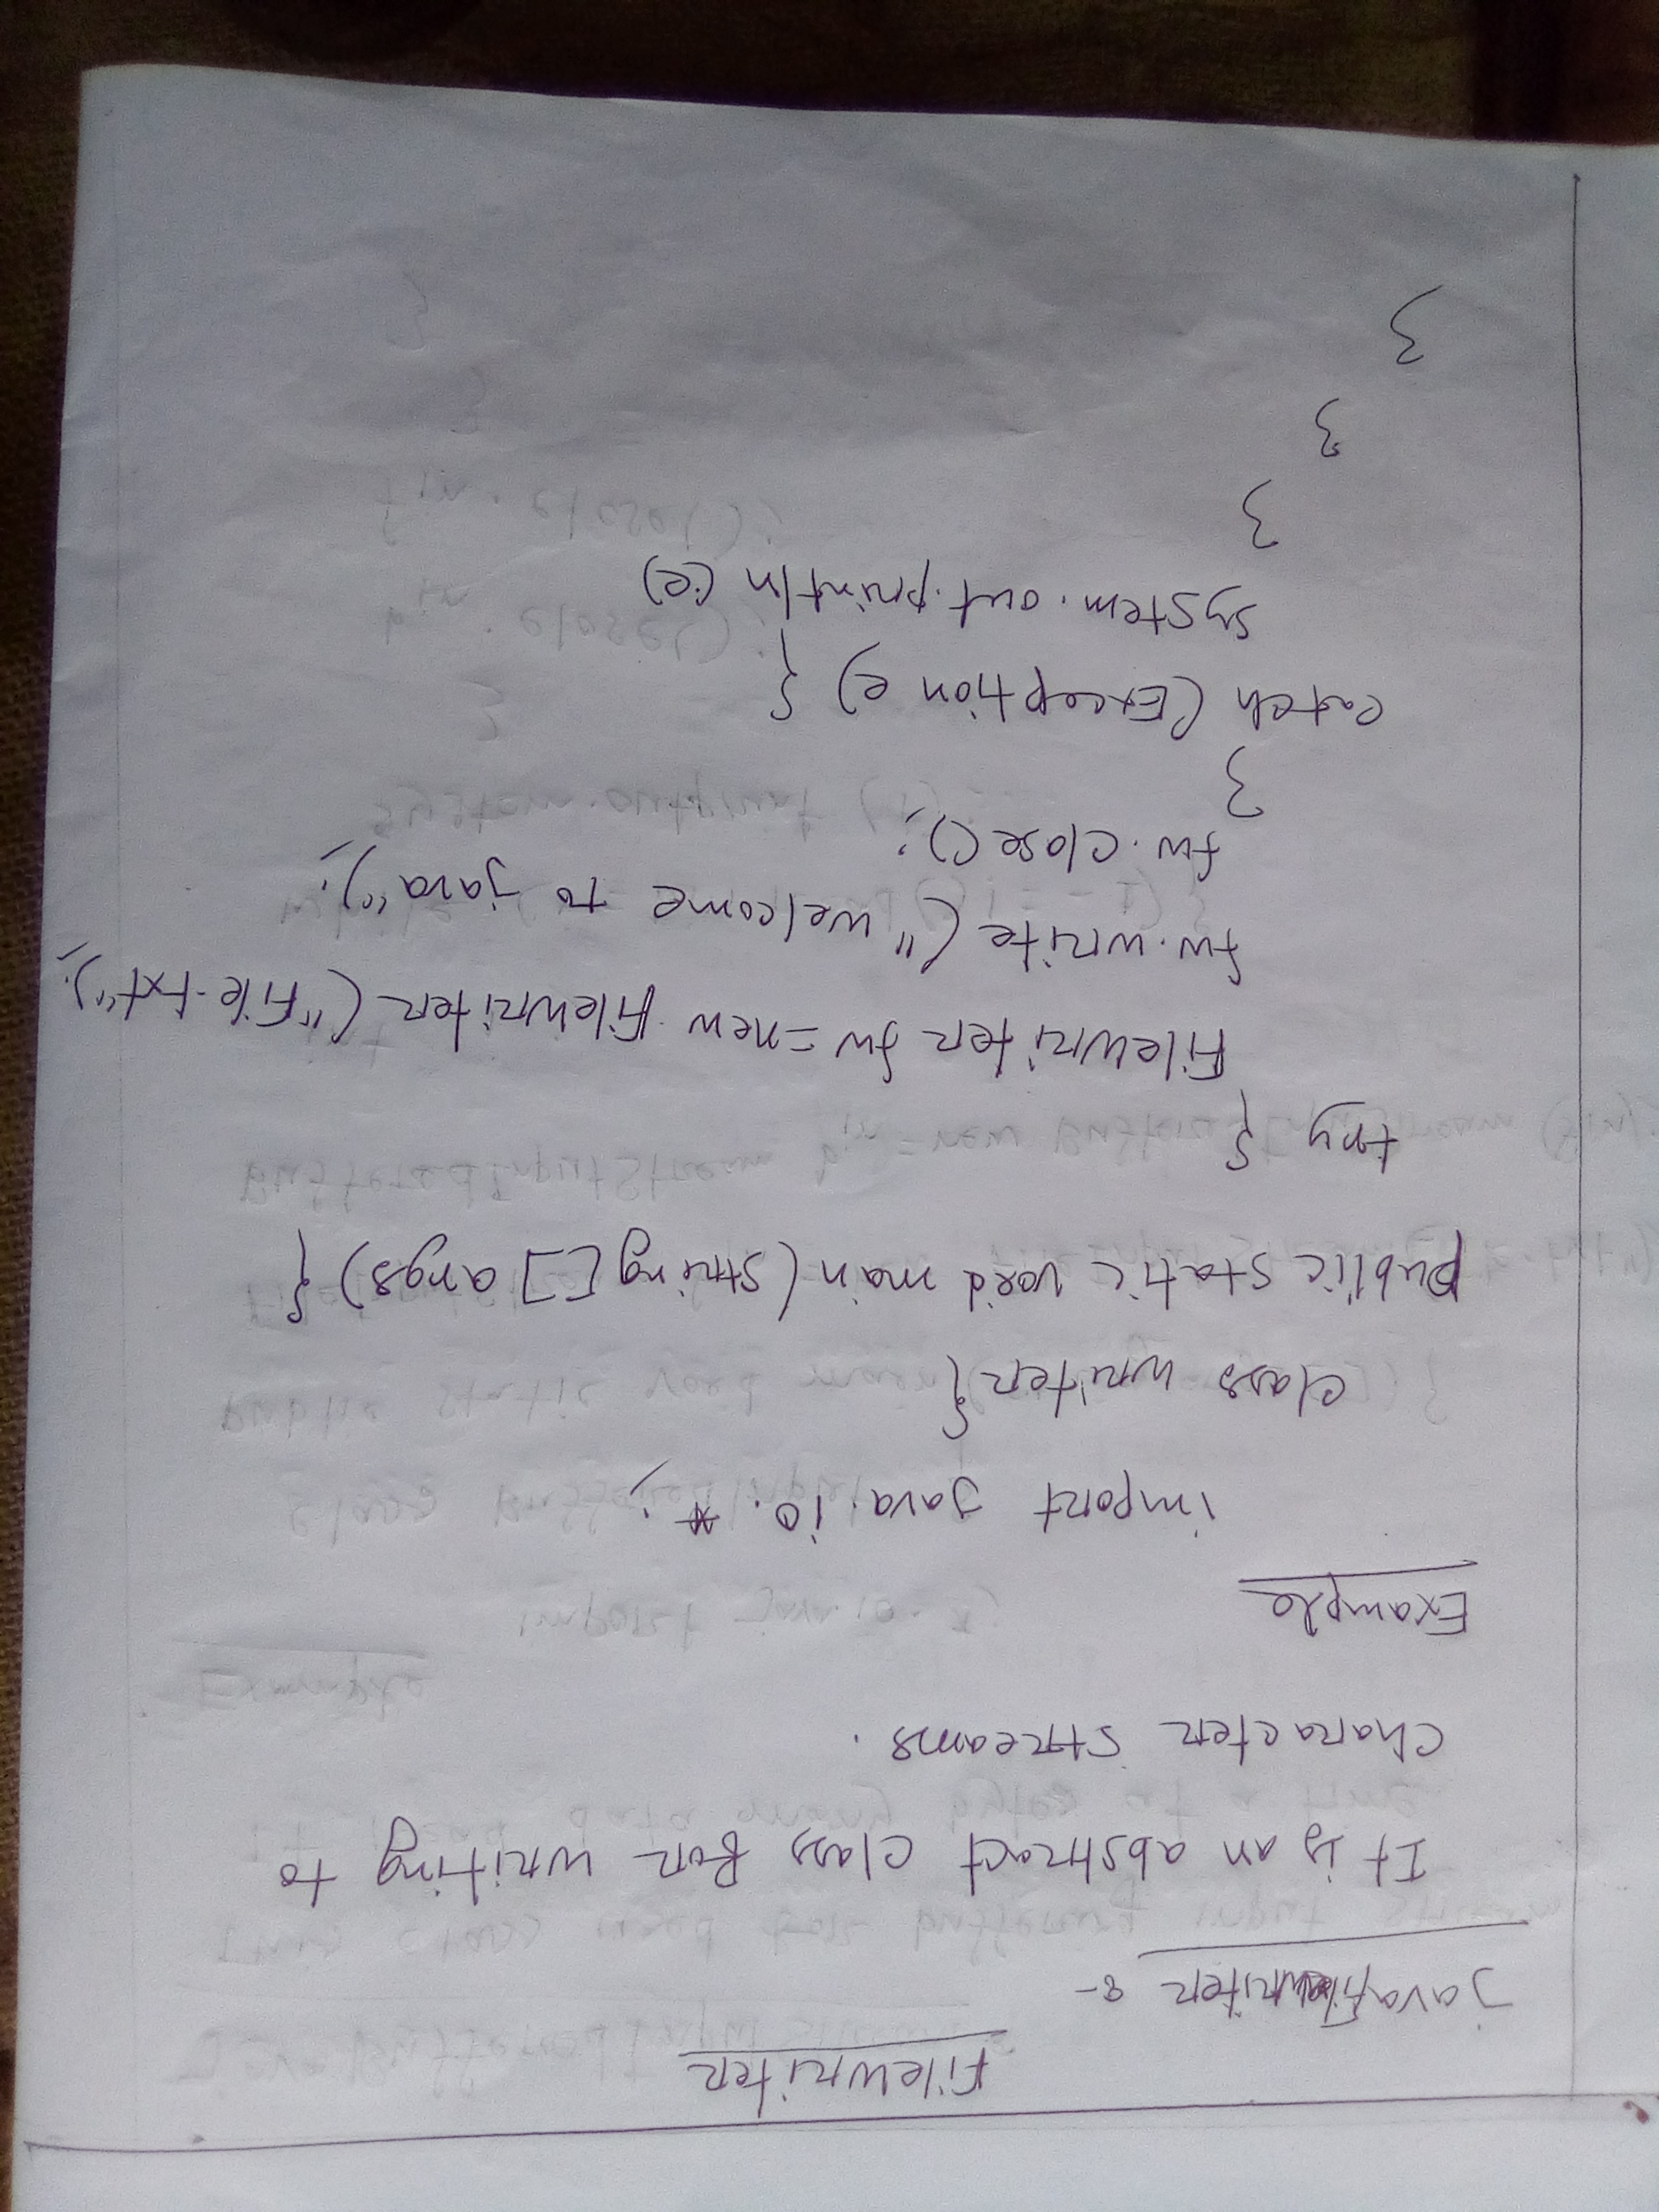 FileWriter
javaFilewriter :-
It is an abstract class for writing to
character streams.
Example
import java.io.*;
class writer{
public static void main(string[] args){
try {
FileWriter fw=new FileWriter("File.txt");
fw.write("welcome to java");
fw.close();
}
catch (Exception e) {
system.out.println(e)
}
}
}